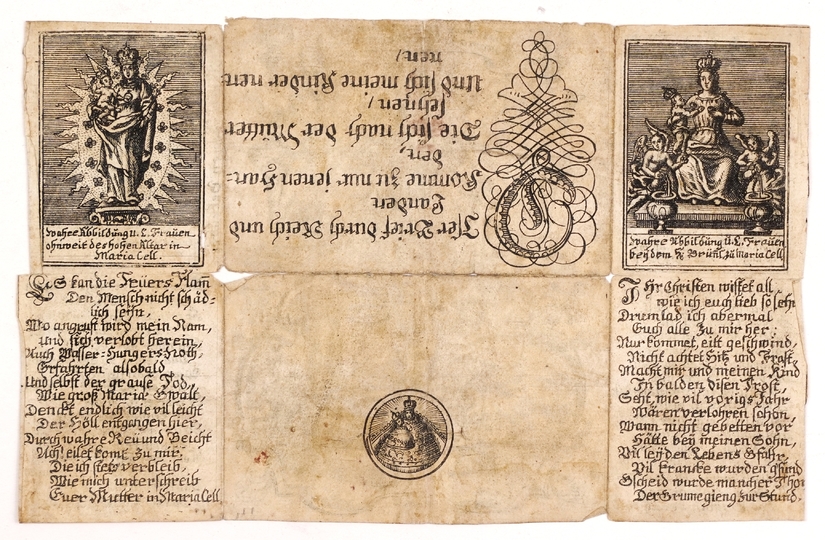 Wahre Abbildung U. L. Frauen
ohnweit des hohen Altar in
Maria Cell.
Es kan die Feuers Flam
Den Mensch nicht schäd=
lich seyn,
Wo angrufft wird mein Nam,
und sich verlobt herein,
Auch Wasser= Hungers=Noth,
Erfahrten alsobald
Und selbst der grause Tod,
Wie groß Maria Gwalt,
Denckt endlich wie vil leicht
Der Höll entgangen hier,
Durch wahre Reü und Beicht
Ach! eilet komt zu mir,
Die ich stets verbleib,
Wie mich unterschreib
Euer Mutter in Maria Cell
Brief durch Reich und
Landen
Komme zu nur jenen Han=
den,
Die sich nach der Mutter
sehnen/
Und sich meine Kinder nen=
nen/
Wahre Abbildung U. L. Frauen
bey dem H. Brünl, zu Maria Cell
Ihr Christen wisset all,
wie ich euch lieb so sehr
Drum lad ich abermal
Euch alle zu mir her;
Nur kommet, eilt geschwind,
Nicht achtet Hitz und Frost,
Macht mir und meinen Kind
In balden disen Trost,
Seht, wie vil vorigs Jahr
Wären verlohren schon,
Wann nicht gebetten vor
Hätte bey meinen Sohn,
Vil leyden Lebens Gfahr,
Vil krancke wurden gsund
Gscheid wurde mancher Thor
Der Grume gieng zur Stund.